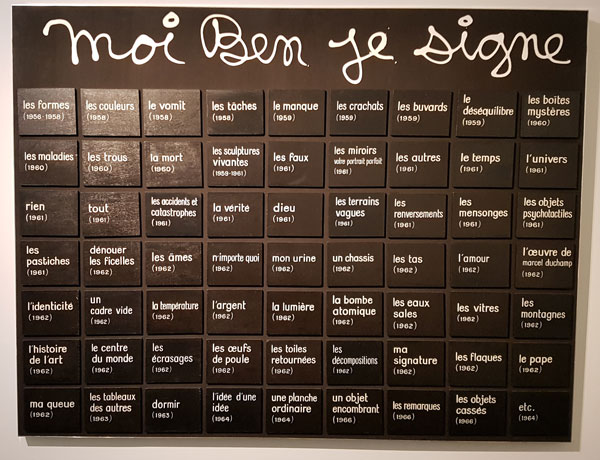 moi Ben je signe
les formes
(1956-1958)
les couleurs
(1958)
le vomit
(1958)
les tâches
(1958)
le manque
(1959)
les crachats
(1959)
les buvards
(1959)
le
déséquilibre
(1959)
les boites
mystères
(1960)
les maladies
(1960)
les trous
(1960)
la mort
(1960)
les sculptures
vivantes
(1959-1961)
les faux
(1961)
les miroirs
votre portrait parfait
(1961)
les autres
(1961)
le temps
(1961)
l'univers
(1961)
rien
(1961)
tout
(1961)
les accidents et
catastrophes
(1961)
la vérité
(1961)
dieu
(1961)
les terrains
vagues
(1961)
les
renversements
(1961)
les
mensonges
(1961)
les objets
psychotactiles
(1961)
les
pastiches
(1961)
dénouer
les ficelles
(1962)
les âmes
(1962)
n'importe quoi
(1962)
mon urine
(1962)
un chassis
(1962)
les tas
(1962)
l'amour
(1962)
l'œuvre de
marcel duchamp
(1962)
l'identicité
(1962)
un
cadre vide
(1962)
la température
(1962)
l'argent
(1962)
la lumière
(1962)
la bombe
atomique
(1962)
les eaux
sales
(1962)
les vitres
(1962)
les
montagnes
(1962)
l'histoire
de l'art
(1962)
le centre
du monde
(1962)
les
écrasages
(1962)
les œufs
de poule
(1962)
les toiles
retournées
(1962)
les
décompositions
(1962)
ma
signature
(1962)
les flaques
(1962)
le pape
(1962)
ma queue
(1962)
les tableaux
des autres
(1963)
dormir
(1963)
l'idée d'une
idée
(1964)
une planche
ordinaire
(1964)
un objet
encombrant
(1966)
les remarques
(1966)
les objets
cassés
(1966)
etc.
(1964)